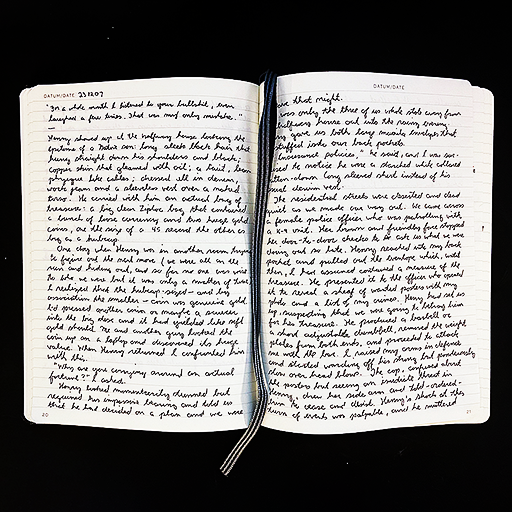 DATUM/DATE 23.12.07
"In a whole month I listened to your bullshit, even
laughed a few times. That was my only mistake."
Henry showed up at the halfway house looking the
epitome of a rock son: long sleek black hair that
hung straight down his shoulders and back;
copper skin that gleamed with oil; a lean
physique like cables; dressed all in denim,
work jeans and a sleeveless vest over a naked
torso. He carried with him an actual bag of
treasure: a big clear ziploc bag, that contained
a bunch of loose currency and two huge gold
coins, one the size of a 45 record the other as
big as a hubcap.
One day when Henry was in another room, trying
to figure out the next move (we were all on the
run and hiding out, and so far no one was wise
to who we were but it was only a matter of time)
I realized that the hubcap-sized and by
association the smaller coin was genuine gold.
I'd pressed another coin or maybe a
into the big disc and it had yielded like soft
gold should. Me and another guy looked the
coin up on a laptop and discovered its huge
value. When Henry returned I confronted him
with this.
"Why are you carrying around an actual
fortune?" I asked.
Henry looked momentarily stunned but
regained his impassive bearing and told us
that he had decided on a plan and we were
20
DATUM/DATE
that night.
was only the three of us who stole away from
halfway house out into the evening.
gave us both large manila envelopes that
stuffed into our back pockets.
"Insurance policies," he said, and I was
to notice he wore a starched white collared
button-down long sleeved shirt instead of his
usual denim vest.
The residential streets were deserted and dead
quiet as we made our way out. We came across
a female police officer who was patrolling with
a K-9 unit. Her brown and friendly face stopped
her door-to-door checks to ask us what we were
doing out so late. Henry reached into my back
pocket and pulled out the envelope which, until
then, I had assumed contained a measure of the
treasure. He presented it to the officer who opened
it to reveal a sheaf of wanted posters with my
photo and a list of my crimes. Henry had set us
up, suspecting that we were going to betray him
for his treasure. He produced a barbell or
a short adjustable dumbbell, removed the weight
plates from both ends, and proceeded to attack
me with the bar. I raised my arms in defence
and started warding off his strong but ponderously
slow over head blows. The cop, confused about
the posters but seeing an immediate threat in
Henry, drew her side arm and told - ordered -
him to cease and desist. Henry's shock at this
turn of events was palpable, and he muttered
21